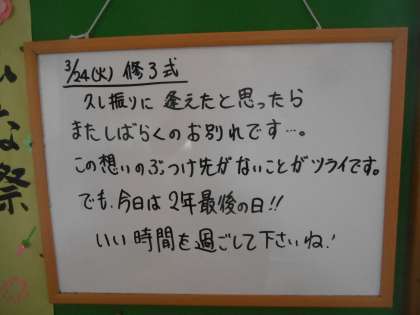 3/24(火) 修了式
久し振りに 逢えたと思ったら
またしばらくのお別れです…。
この想いのぶつけ先がないことがツライです。
でも、今日は2年最後の日!!
いい時間を過ごして下さいね!
な祭